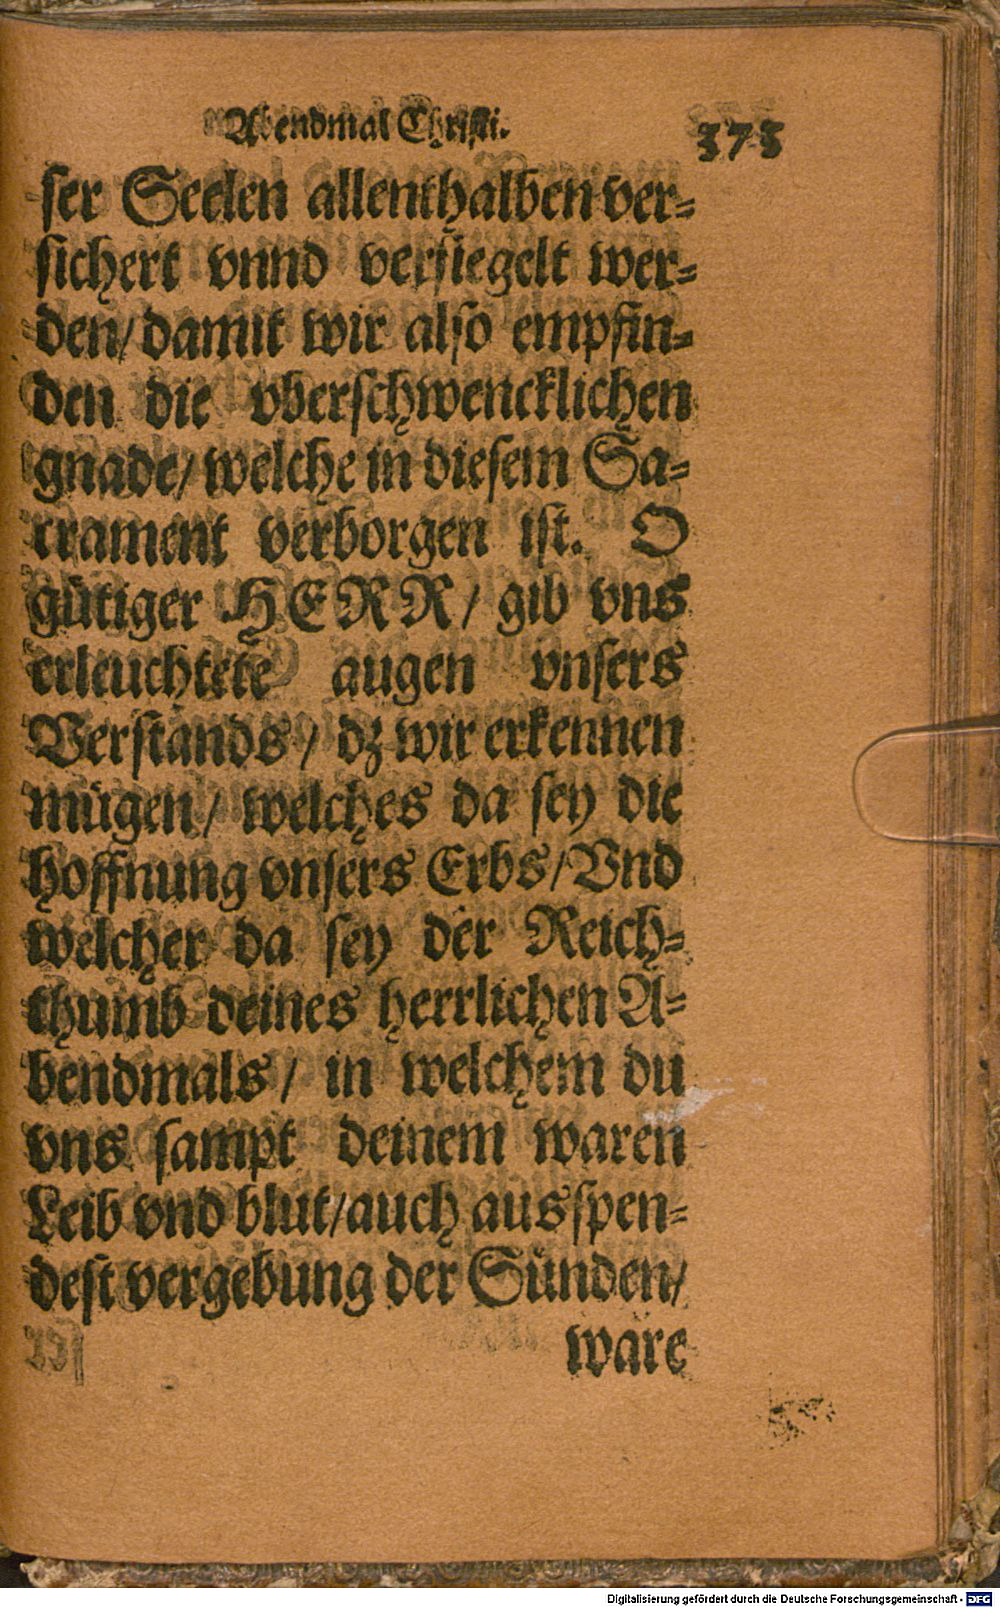 Abendmal Christi. 373
ser Seelen allenthalben ver-
sichert vnnd versiegelt wer-
den/ damit wir also empfin-
den die vberschwencklichen
gnade/ welche in diesem Sa-
crament verborgen ist. O
gütiger HERR/ gib vns
erleuchtete augen vnsers
Verstands/ dz wir erkennen
mügen/ welches da sey die
hoffnung vnsers Erbs/ Vnd
welcher da sey der Reich-
thumb deines herrlichen A-
bendmals/ in welchem du
vns sampt deinem waren
Leib vnd blut/ auch ausspen-
dest vergebung der Sünden/
ware
Digitalisierung gefördert durch die Deutsche Forschungsgemeinschaft - DFG